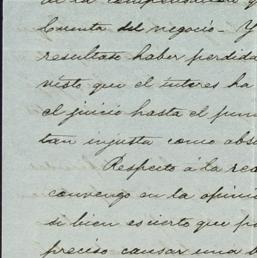 de la compensacion q
Cuenta del negocio - Y
resultase haber perdida
visto que el interes ha
el juicio hasta el pun
tan injusta como abs
Respecto á la rea
convengo en la opini
si bien es cierto que p
preciso causar una b